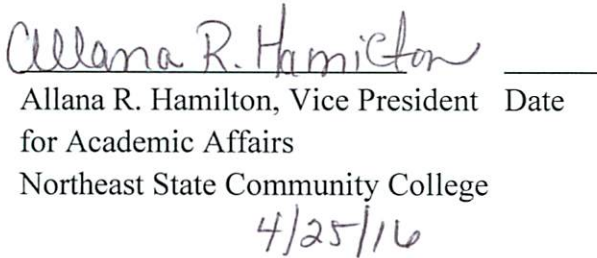 Allana R. Hamilton
Allana R. Hamilton, Vice President Date
for Academic Affairs
Northeast State Community College
4/25/16